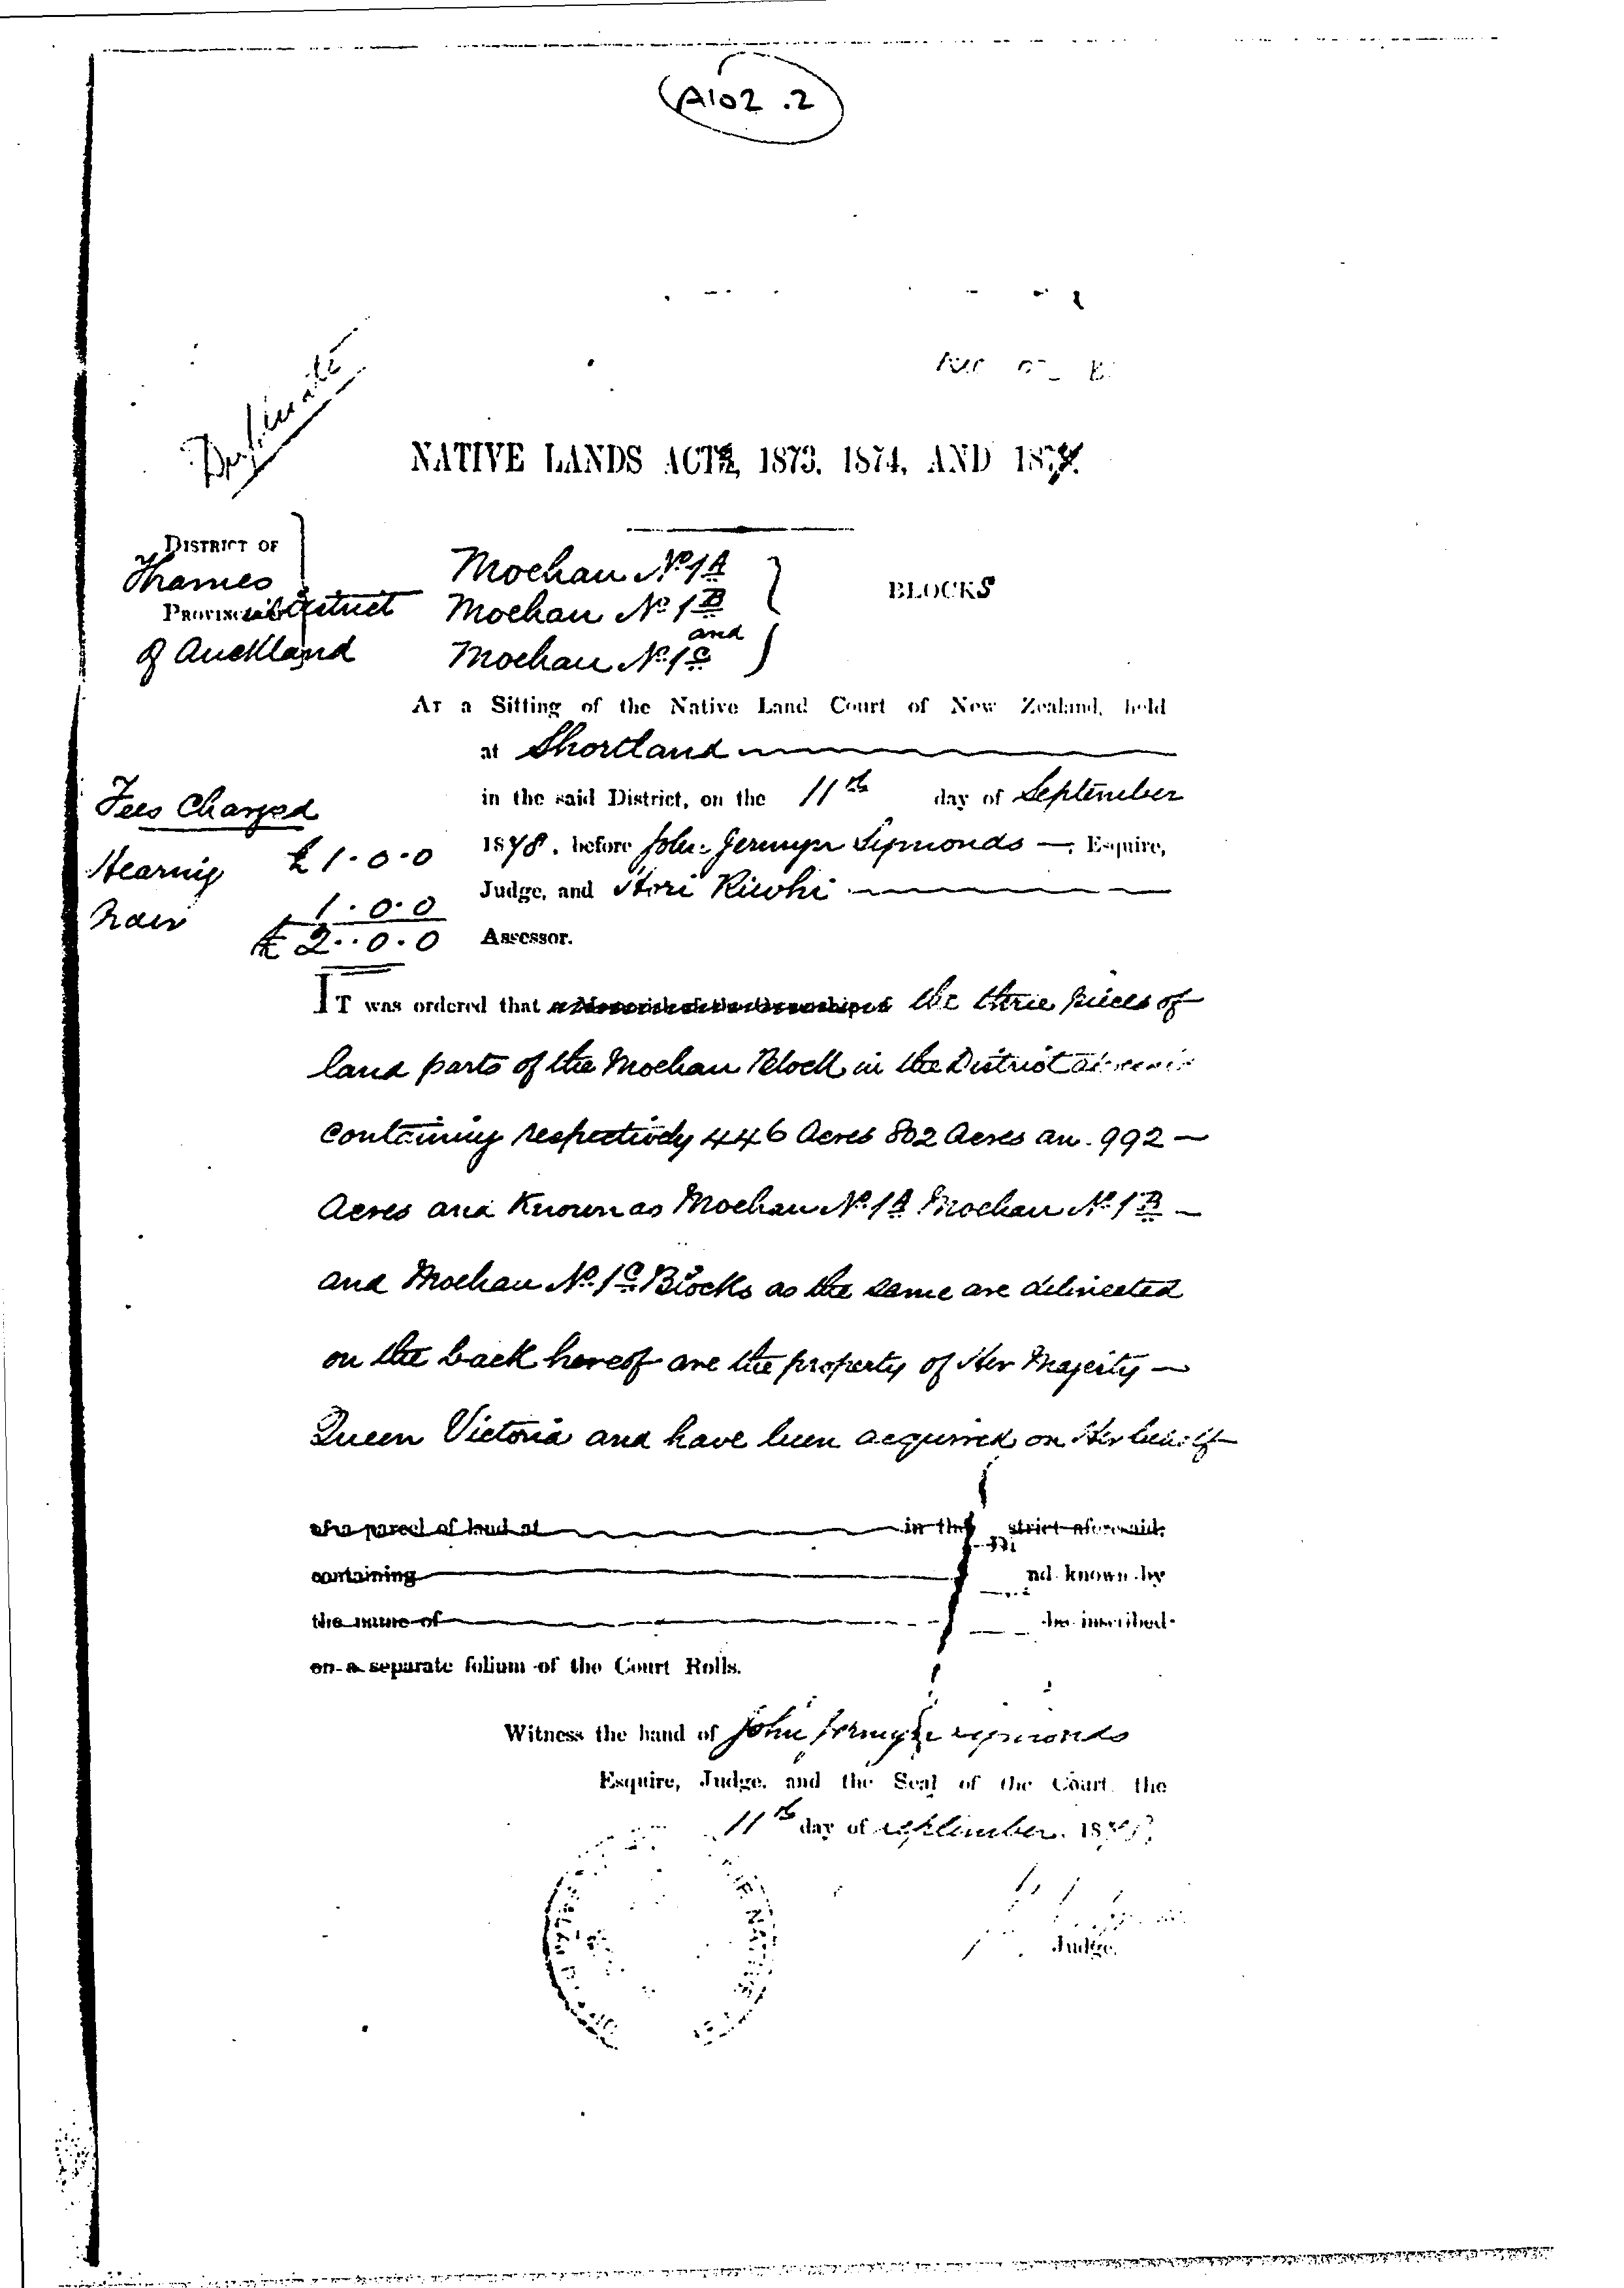 A102.2
Duplicate
NATIVE LANDS ACTS, 1873, 1874, AND 1877.
DISTRICT OF
Thames
PROVINCIAL District
of Auckland
Moehau No 1A
Moehau No 1B
and
Moehau No 1C
BLOCKS
AT a Sitting of the Native Land Court of New Zealand, held
at Shortland
in the said District, on the 11th day of September
1878, before John Jermyn Symonds —, Esquire,
Judge, and Hori Riwhi
Assessor.
Fees Charged
Hearing £1.0.0
1.0.0
£2.0.0
IT was ordered that a Memorial of the Ownership of the three pieces of
land parts of the Moehau Block in the District
containing respectively 446 Acres 802 Acres an 992 —
Acres and Known as Moehau No 1A Moehau No 1B —
and Moehau No. 1C Blocks as the same are delineated
on the back hereof are the property of Her Majesty —
Queen Victoria and have been acquired on Her behalf
of a parcel of land at in the strict aforesaid,
containing nd known by
the name of be inscribed
on a separate folium of the Court Rolls.
Witness the hand of John Jermyn Symonds
Esquire, Judge, and the Seal of the Court, the
11th day of September, 1878.
Judge.